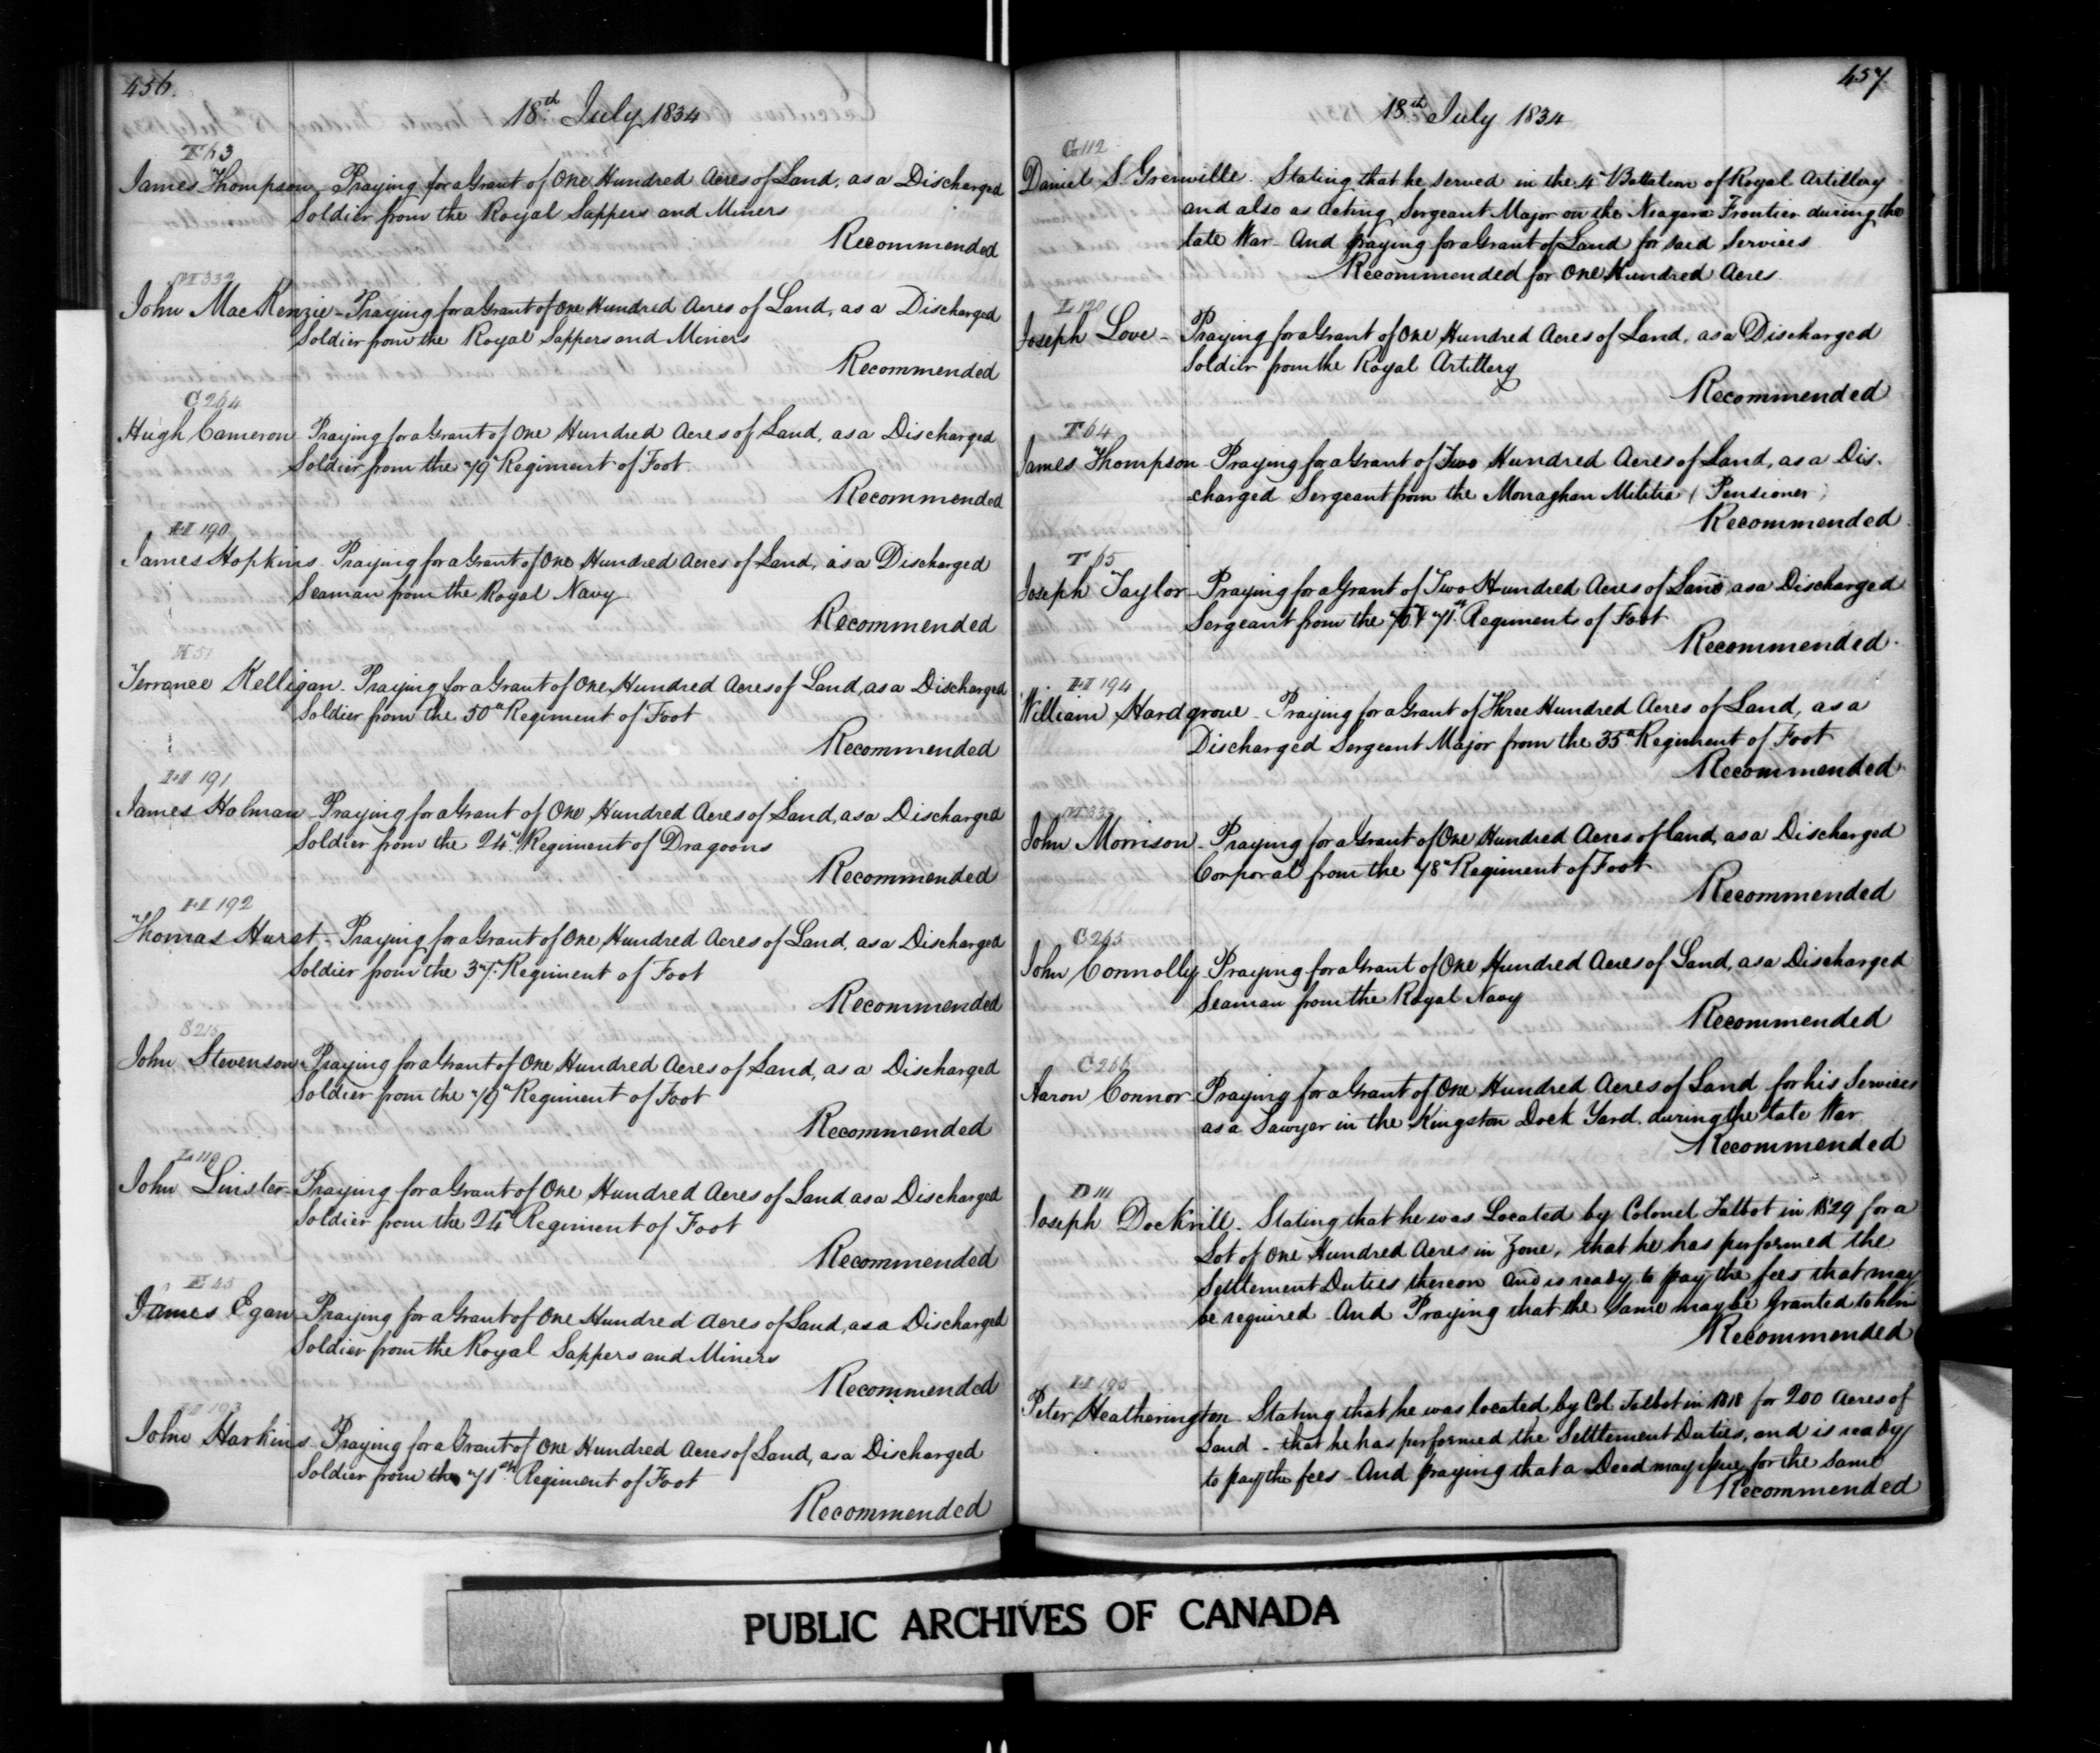 456.
18th July 1834
T 63
James Thompson, Praying for a Grant of One Hundred Acres of Land, as a Discharged
Soldier from the Royal Sappers and Miners
Recommended
M 332
John MacKenzie - Praying for a Grant of One Hundred Acres of Land, as a Discharged
Soldier from the Royal Sappers and Miners
Recommended
C 264
Hugh Cameron Praying for a Grant of One Hundred Acres of Land, as a Discharged
Soldier from the 79th Regiment of Foot
Recommended
H 190
James Hopkins. Praying for a Grant of One Hundred Acres of Land, as a Discharged
Seaman from the Royal Navy
Recommended
K 51
Terrance Kelligan - Praying for a Grant of One Hundred Acres of Land, as a Discharged
Soldier from the 50th Regiment of Foot
Recommended
H 191
James Holman - Praying for a Grant of One Hundred Acres of Land, as a Discharged
Soldier from the 24th Regiment of Dragoons
Recommended
H 192
Thomas Hurst, - Praying for a Grant of One Hundred Acres of Land, as a Discharged
Soldier from the 37th Regiment of Foot
Recommended
S 215
John Stevenson - Praying for a Grant of One Hundred Acres of Land, as a Discharged
Soldier from the 79th Regiment of Foot
Recommended
L 119
John Linster - Praying for a Grant of One Hundred Acres of Land as a Discharged
Soldier from the 24th Regiment of Foot
Recommended
E 45
James Egan - Praying for a Grant of One Hundred Acres of Land, as a Discharged
Soldier from the Royal Sappers and Miners
Recommended
H 193
John Harkins - Praying for a Grant of One Hundred Acres of Land, as a Discharged
Soldier from the 71st Regiment of Foot
Recommended
457
18th July 1834
G 112
Daniel S. Grenville. Stating that he served in the 4th Battalion of Royal Artillery
and also as Acting Sergeant Major on the Niagara Frontier during the
late War - And praying for a Grant of Land for said Services
Recommended for One Hundred Acres.
L 120
Joseph Love - Praying for a Grant of One Hundred Acres of Land, as a Discharged
Soldier from the Royal Artillery
Recommended
T 64
James Thompson - Praying for a Grant of Two Hundred Acres of Land, as a Dis-
charged Sergeant from the Monaghan Militia (Pensioner)
Recommended
T 65
Joseph Taylor - Praying for a Grant of Two Hundred Acres of Land as a Discharged
Sergeant from the & 71st Regiments of Foot
Recommended.
H 194
William Hardgrove - Praying for a Grant of Three Hundred Acres of Land, as a
Discharged Sergeant Major from the 35th Regiment of Foot
Recommended
M 333
John Morrison - Praying for a Grant of One Hundred Acres of Land, as a Discharged
Corporal from the 78th Regiment of Foot
Recommended
C 265
John Connolly Praying for a Grant of One Hundred Acres of Land, as a Discharged
Seaman from the Royal Navy
Recommended
C 266
Aaron Connor - Praying for a Grant of One Hundred Acres of Land for his Services
as a Sawyer in the Kingston Dock Yard. during the late War
Recommended
D 111
Joseph Dockrill. Stating that he was Located by Colonel Talbot in 1829 for a
Lot of One Hundred Acres in Zone, that he has performed the
Settlement Duties thereon and is ready to pay the fees that may
be required - And Praying that the same may be Granted to him
Recommended
H 195
Peter Heatherington. Stating that he was located by Col Talbot in 1818 for 200 Acres of
Land - that he has performed the Settlement Duties, and is ready
to pay the fees - And praying that a Deed may issue for the same
Recommended
PUBLIC ARCHIVES OF CANADA